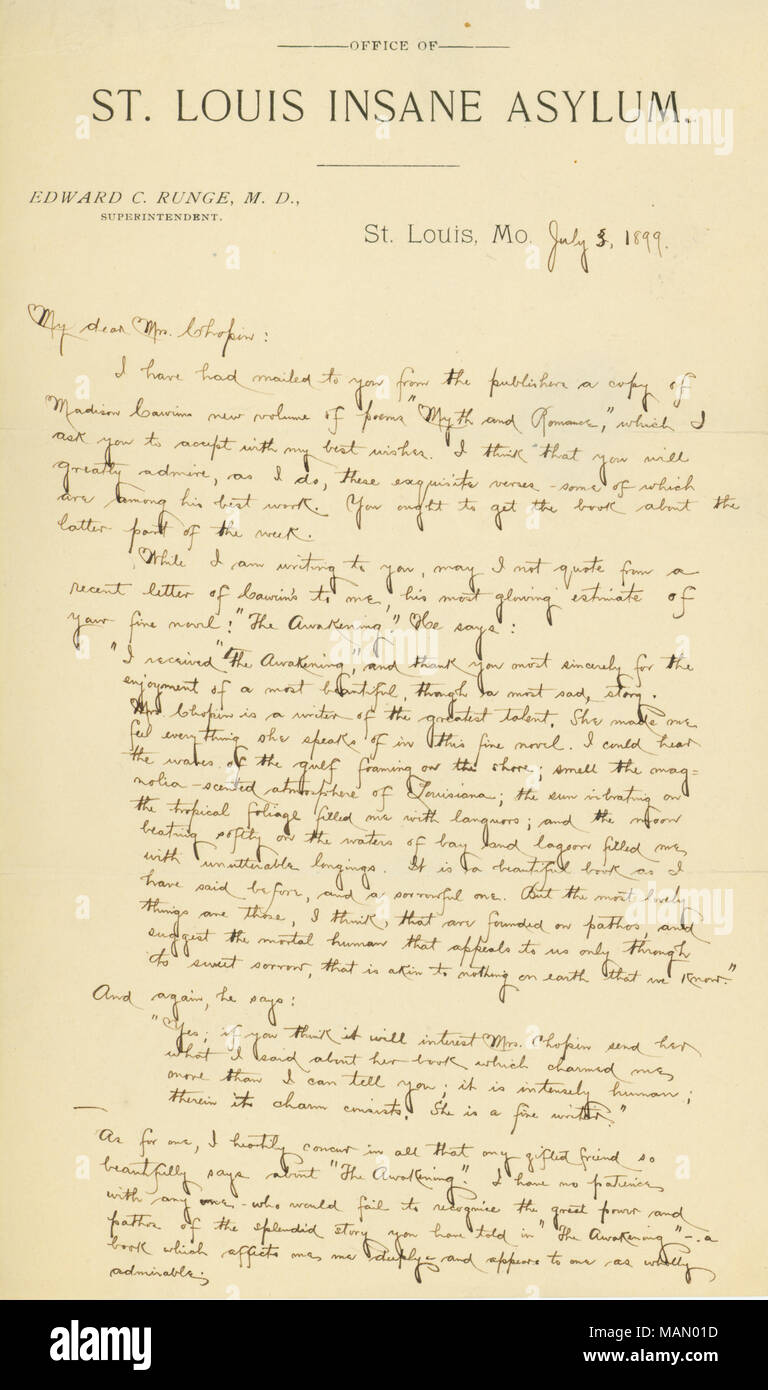 OFFICE OF
ST. LOUIS INSANE ASYLUM.
EDWARD C. RUNGE, M. D.,
SUPERINTENDENT.
St. Louis, Mo. July 3, 1899.
My dear Mrs. Chopin:
I have had mailed to you from the publishers a copy of
Madison Cawein's new volume of poems "Myth and Romance," which I
ask you to accept with my best wishes. I think that you will
greatly admire, as I do, these exquisite verses - some of which
are among his best work. You ought to get the book about the
latter part of the week.
While I am writing to you, may I not quote from a
recent letter of Cawein's to me, his most glowing estimate of
your fine novel: "The Awakening." He says:
"I received "The Awakening," and thank you most sincerely for the
enjoyment of a most beautiful, though a most sad, story.
Mrs. Chopin is a writer of the greatest talent. She made me
feel everything she speaks of in this fine novel. I could hear
the waves of the gulf foaming on the shore; smell the mag=
nolia-scented atmosphere of Louisiana; the sun vibrating on
the tropical foliage filled me with languors; and the moon
beating softly on the waters of bay and lagoon filled me
with unutterable longings. It is a beautiful book as I
have said before, and a sorrowful one. But the most lovely
things are those, I think, that are founded on pathos, and
suggest the mortal human that appeals to us only through
its sweet sorrow, that is akin to nothing on earth that we know."
And again, he says:
"Yes; if you think it will interest Mrs. Chopin send her
what I said about her book which charmed me
more than I can tell you; it is intensely human;
therein its charm consists. She is a fine writer."
As for one, I heartily concur in all that my gifted friend so
beautifully says about "The Awakening." I have no patience
with any one - who would fail to recognise the great power and
pathos of the splendid story you have told in "The Awakening" - a
book which affects me deeply - and appears to me as wholly
admirable.
alamy
alamy
Image ID: MAN01D
www.alamy.com